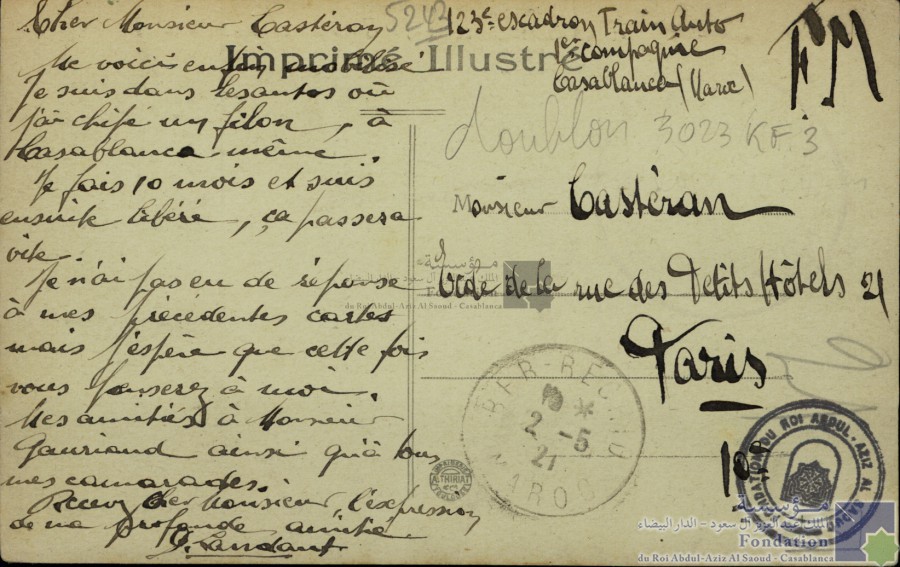 Cher Monsieur Castéran
Me voici enfin mobilisé
Je suis dans les autos où
j'ai chipé un filon, à
Casablanca même
Je fais 10 mois et suis
ensuite libéré, ça passera
vite.
Je n'ai pas eu de réponse
à mes précédentes cartes
mais j'espère que cette fois
vous penserez à moi.
Mes amitiés à Monsieur
Gauriand ainsi qu'à tous
mes camarades.
Recevez cher Monsieur l'expression
de ma profonde amitié
Imprimé Illustré
5243
123e escadron Train Auto
1ère compagnie
Casablanca (Maroc)
FM
doublon 3023 KF.3
Monsieur Castéran
de la rue des Petits Hôtels 21
Paris
BER-RECHID
2-5
21
MAROC
109
مؤسسة
الملك عبد العزيز آل سعود - الدار البيضاء
Fondation
du Roi Abdul-Aziz Al Saoud - Casablanca
مؤسسة
du Roi Abdul-Aziz Al Saoud - Casablanca
FONDATION DU ROI ABDUL-AZIZ AL SAOUD